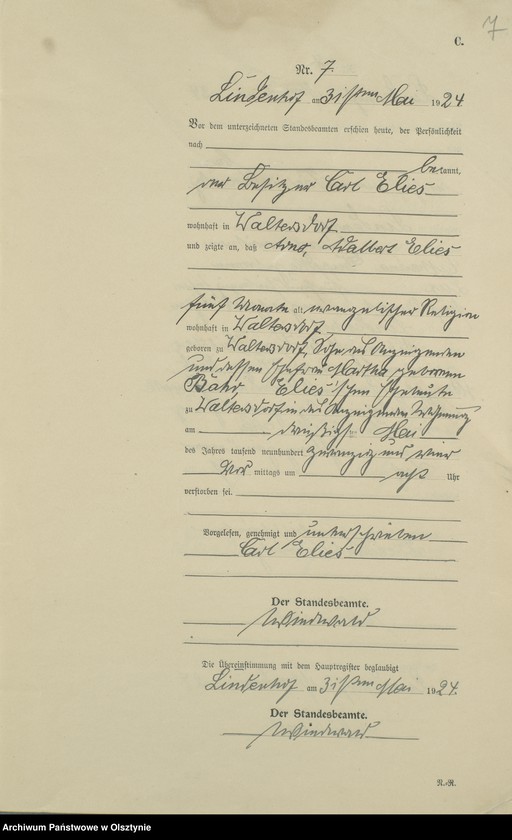 7
C.
Nr. 7.
Lindenhof am 31sten Mai 1924
Vor dem unterzeichneten Standesbeamten erschien heute, der Persönlichkeit
nach
bekannt,
der Besitzer Carl Elies
wohnhaft in Waltersdorf
und zeigte an, daß Arno, Adalbert Elies
fünf Monate alt, evangelischer Religion
wohnhaft in Waltersdorf
geboren zu Waltersdorf, Sohn des Anzeigenden
und dessen Ehefrau Martha geborenen
Bähr Elies'schen Eheleute
zu Waltersdorf in des Anzeigenden Wohnung
am dreißigsten Mai
des Jahres tausend neunhundert zwanzig und vier
Vor mittags um acht Uhr
verstorben sei.
Vorgelesen, genehmigt und unterschrieben
Carl Elies
Der Standesbeamte.
Die Übereinstimmung mit dem Hauptregister beglaubigt
Lindenhof am 31sten Mai 1924.
Der Standesbeamte.
Archiwum Państwowe w Olsztynie